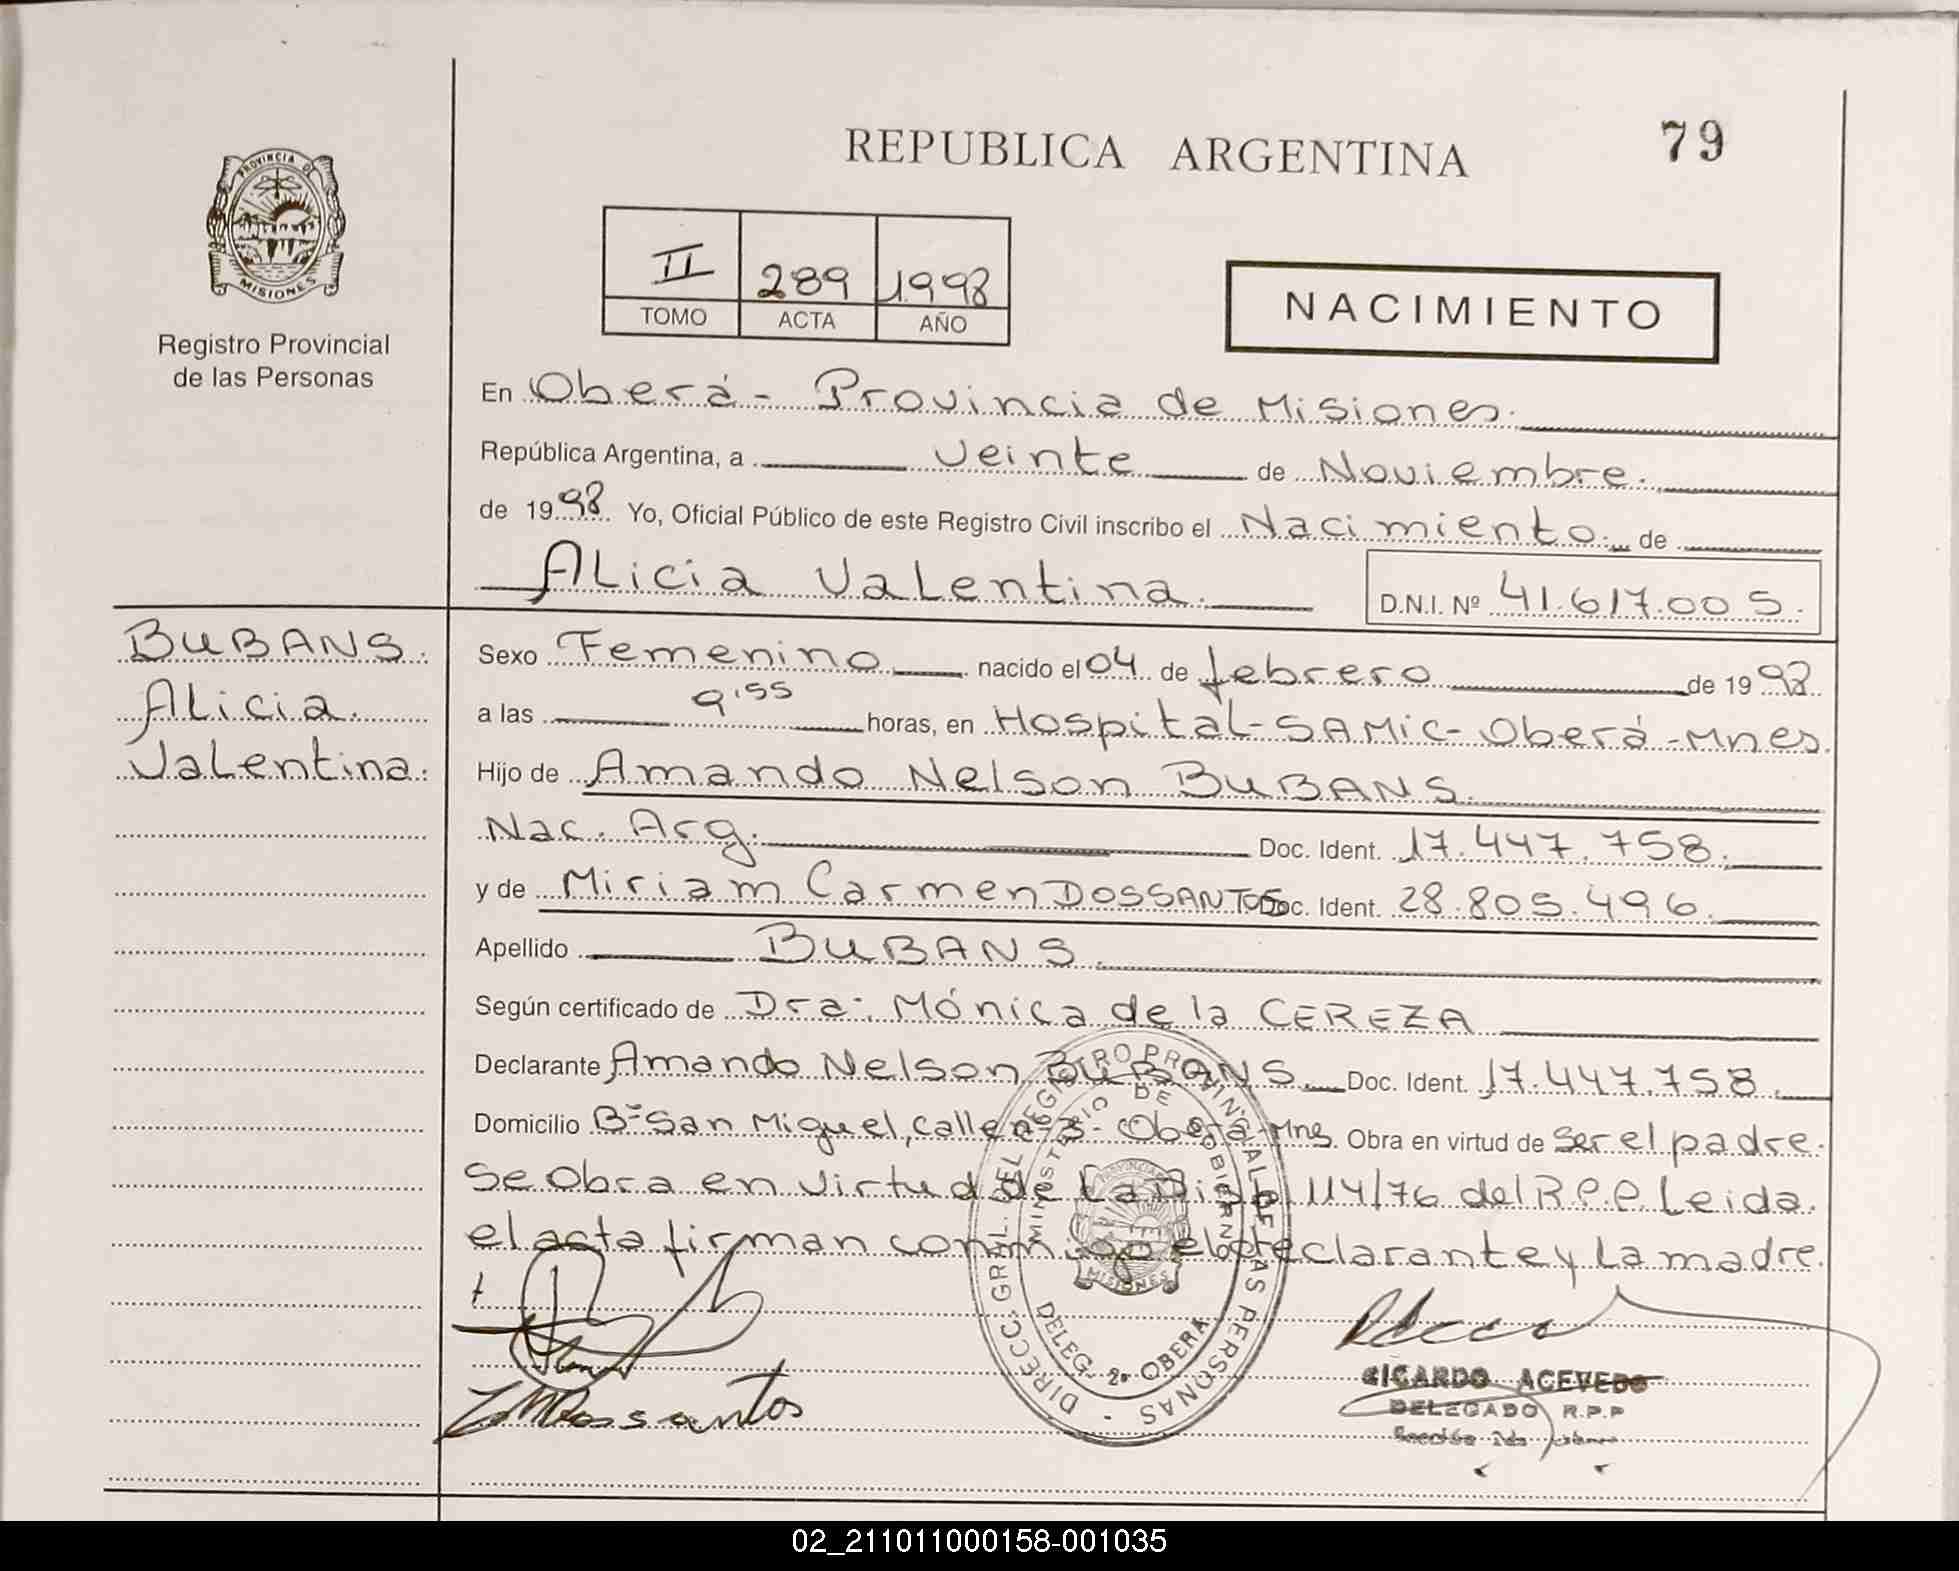 REPUBLICA ARGENTINA
79
PROVINCIA DE
MISIONES
Registro Provincial
de las Personas
II 289 1998
TOMO ACTA AÑO
NACIMIENTO
En Oberá - Provincia de Misiones.
República Argentina, a veinte de Noviembre.
de 1998. Yo, Oficial Público de este Registro Civil inscribo el Nacimiento. de
Alicia Valentina.
D.N.I. Nº 41.617.005.
BUBANS.
Alicia.
Valentina.
Sexo Femenino nacido el 04 de febrero de 1998.
a las 9'55 horas, en Hospital-SAMIC-Oberá-Mnes.
Hijo de Amando Nelson BUBANS.
Nac. Arg. Doc. Ident. 17.447.758.
y de Miriam Carmen DOSSANTOS Doc. Ident. 28.805.496.
Apellido BUBANS.
Según certificado de Dra. Mónica de la CEREZA
Declarante Amando Nelson BUBANS. Doc. Ident. 17.447.758.
Domicilio Bº San Miguel, calle nº 3 - Oberá-Mns. Obra en virtud de ser el padre.
Se Obra en virtud de La Disp. 114/76 del R.P.P. Leida.
el acta firman conmigo el declarante y La madre.
DIRECC. GRAL. DEL REGISTRO PROVINCIAL DE LAS PERSONAS
MINISTERIO DE GOBIERNO
PROVINCIA DE
MISIONES
DELEG. 2ª OBERA
Dossantos
RICARDO ACEVEDO
DELEGADO R.P.P
02_211011000158-001035